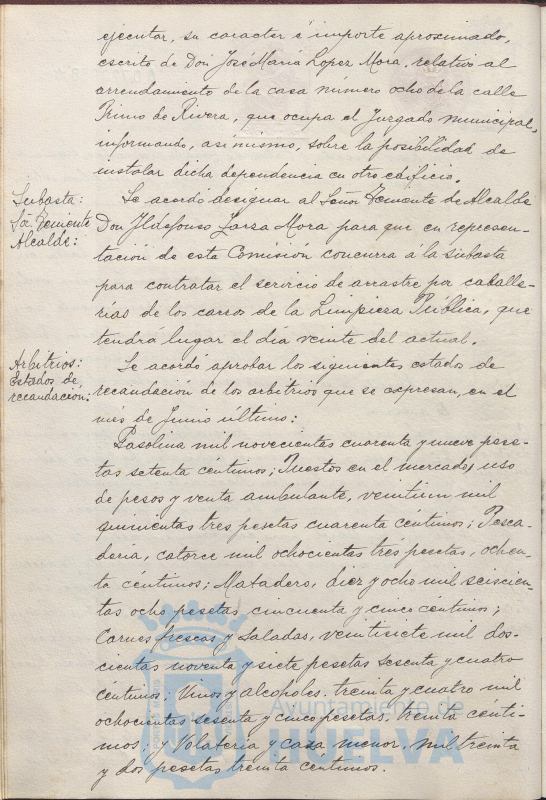 ejecutar, su caracter é importe aproximado,
escrito de Don José María Lopez Mora, relativo al
arrendamiento de la casa número ocho de la calle
Primo de Rivera, que ocupa el Juzgado municipal,
informando, asimismo, sobre la posibilidad de
instalar dicha dependencia en otro edificio.
Subasta:
Sr. Teniente
Alcalde:
Se acordó designar al Señor Teniente de Alcalde
Don Ildefonso Mora para que en represen-
tación de esta Comisión concurra á la subasta
para contratar el servicio de arrastre por caballe-
rías de los carros de la Limpieza Pública, que
tendrá lugar el día veinte del actual.
Arbitrios:
Estados de
recaudación:
Se acordó aprobar los siguientes estados de
recaudación de los arbitrios que se expresan, en el
mes de Junio último:
Gasolina mil novecientas cuarenta y nueve pese-
tas setenta céntimos; Puestos en el mercado, uso
de pesos y venta ambulante, veintiun mil
quinientas tres pesetas cuarenta céntimos; Pesca-
dería, catorce mil ochocientas tres pesetas, ochen-
ta céntimos; Matadero, diez y ocho mil seiscien-
tas ocho pesetas cincuenta y cinco céntimos;
Carnes frescas y saladas, veintisiete mil dos-
cientas noventa y siete pesetas sesenta y cuatro
céntimos; Vinos y alcoholes, treinta y cuatro mil
ochocientas sesenta y cinco pesetas, treinta cénti-
mos; y Volatería y caza menor, mil treinta
y dos pesetas treinta céntimos.
Ayuntamiento de
HUELVA